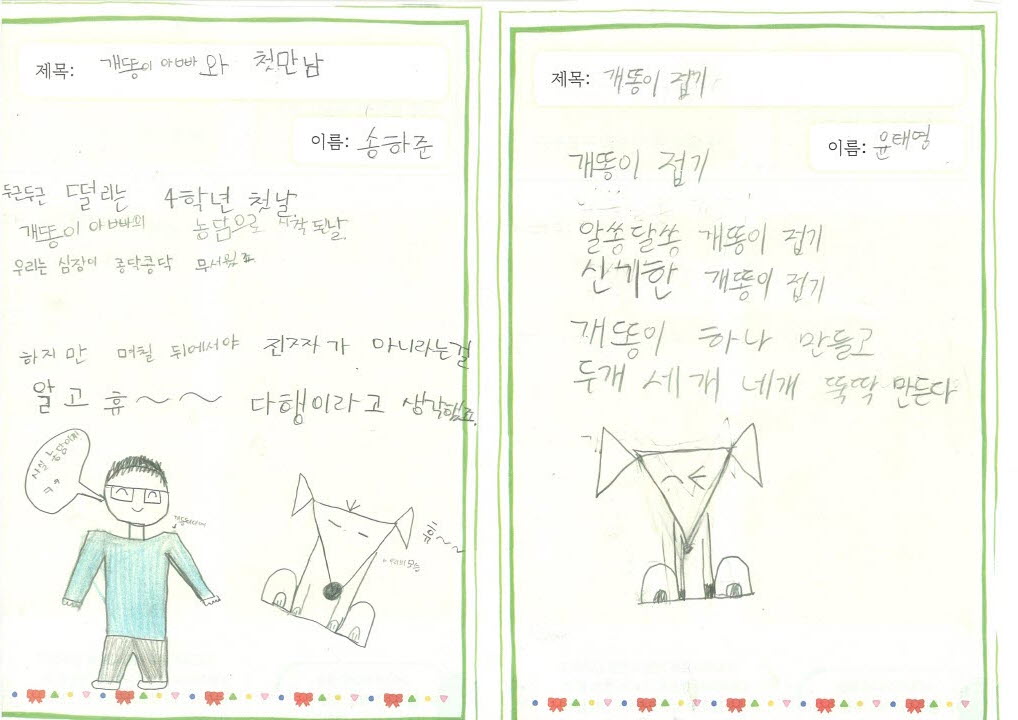 제목: 개똥이 아빠와 첫만남
이름: 송하준
두근두근 떨리는 4학년 첫날
개똥이 아빠의 농담으로 시작 된날
우리는 심장이 콩닥콩닥 무서웠죠
하지만 며칠 뒤에서야 진짜가 아니라는걸
알고 휴~~ 다행이라고 생각했죠.
사실 농담이지
ㅋㅋ
휴~~
제목: 개똥이 접기
이름: 윤태영
개똥이 접기
알쏭달쏭 개똥이 접기
신기한 개똥이 접기
개똥이 하나 만들고
두개 세개 네개 뚝딱 만든다